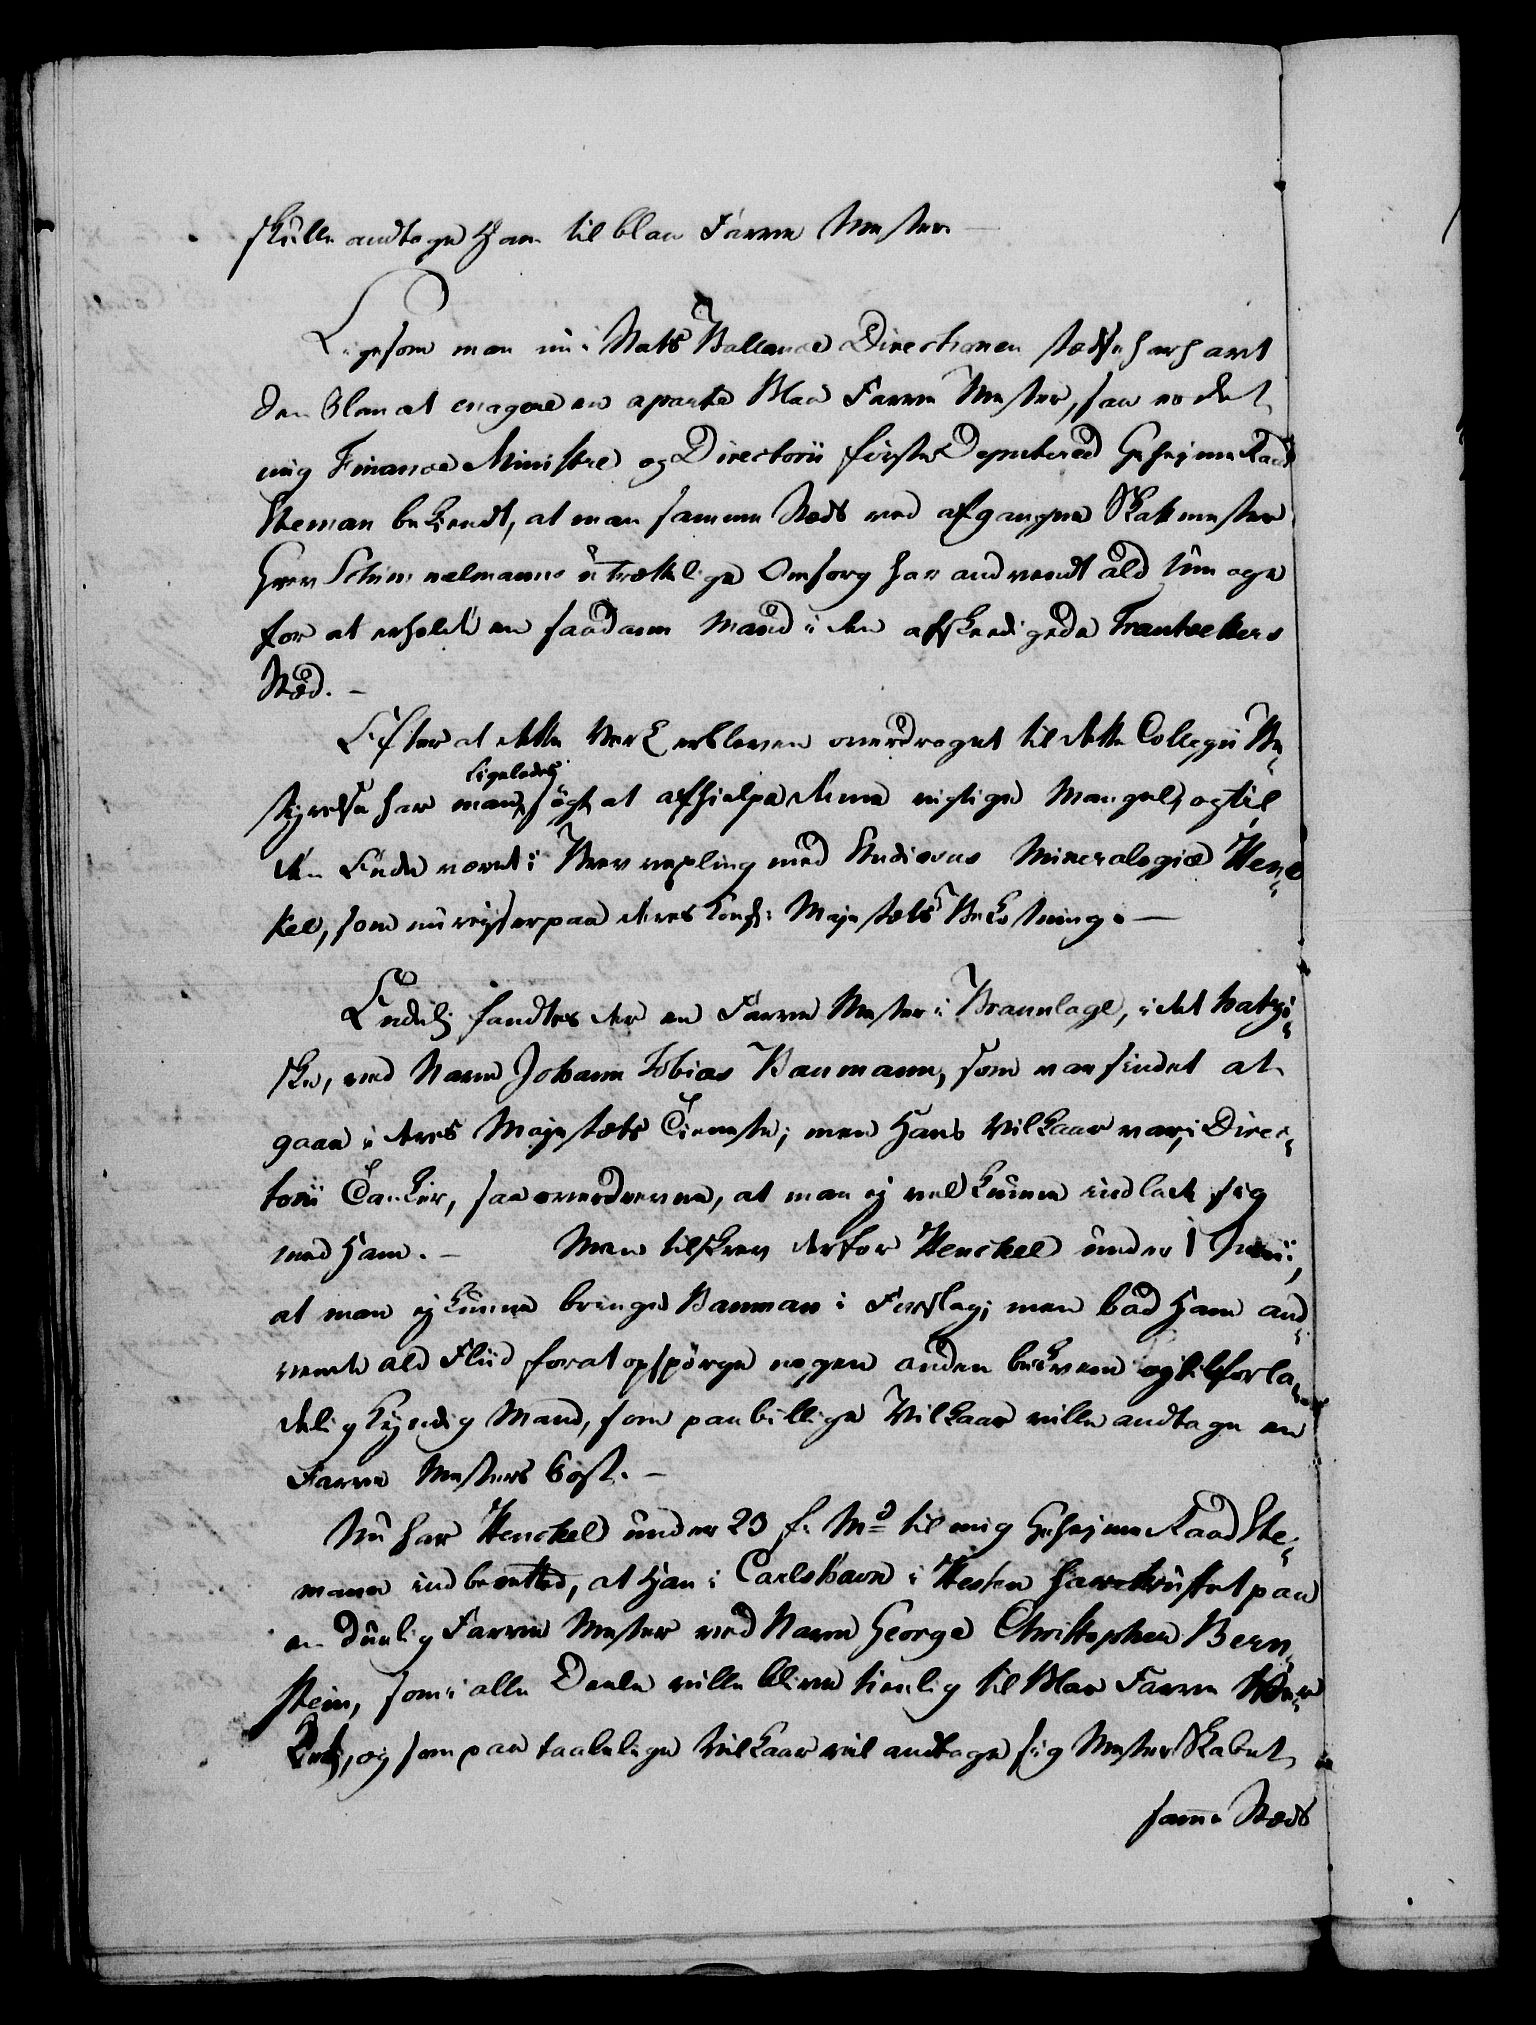 skulle andtage ham til blaa Farve Mester. —
Ligesom man nu i Stats Ballance Directionen stedse har havt
den Plan at enagere en aparte Blaa Farve Mester, saa er det
mig Finance Ministre og Directorii første Deputered Geheime Raad
Steman bekiendt, at man samme Steds ved afgangne Skatmester
Grev Schimmelmanns utrættelige Omsorg har andvendt ald Umage
for at erholde en saadann Mand i den afskeedigede Trantvetters
Stæd. —
Efter at dette Verk er bleven overdraget til dette Collegii Be-
styrelse har man ligeledes søgt at afhielpe denne vigtige Mangel, og til
den Ende været i Brevvexling med Studiosus Mineralogiæ Hen-
kel, som nu reyser paa deres Kongl: Majestæts Bekostning. —
Endelig fandtes der en Farve Mester i Braunlage, i det hartzi-
ske, ved Navn Johann Tobias Baumann, som var sindet at
gaae i deres Majestæts Tieneste; men hans Vilkaar var, i Direc-
torii Tanker, saa overdrevne, at man ej vel kunne indlade sig
med ham. — Man tilskrev derfor Henckel under 1 Junii,
at man ej kunne bringe Bauman i Forslag; men bad ham and-
vende ald Fliid for at opspørge nogen anden beqvem og tilforla-
delig kyndig Mand, som paa billige Vilkaar ville andtage en
Farve Mesters Post. —
Nu har Henckel under 23 f. Md til mig Geheime Raad Ste-
mann indberetted, at han i Carlshavn i Hesten har truffet paa
en duelig Farve Mester ved Navn George Christopher Bern-
stein, som i alle Deele ville blive tienlig til Blaa Farve Vær-
ket, og som paa taalelige Vilkaar vil andtage sig Mesterskabet
samme Steds